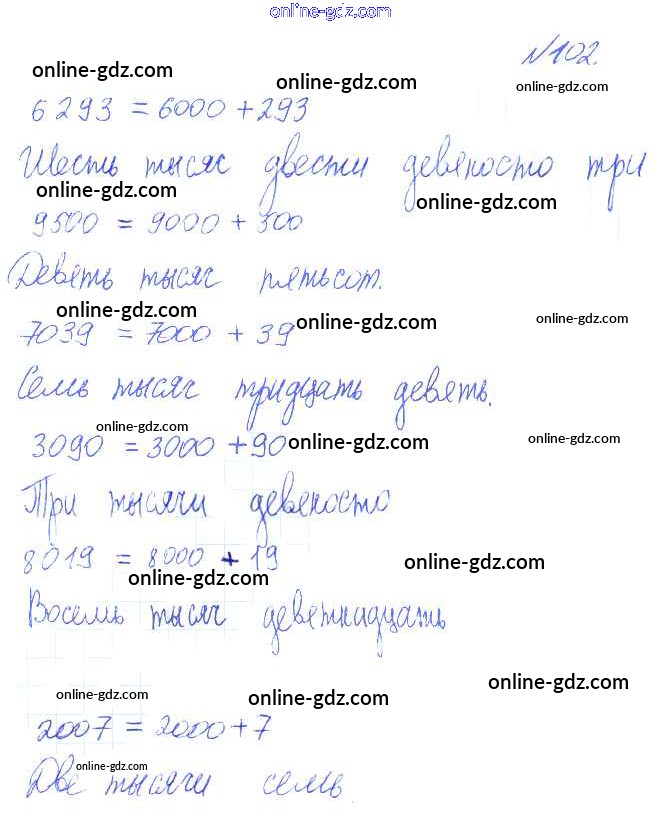 online-gdz.com
№102.
online-gdz.com online-gdz.com online-gdz.com
6293 = 6000 + 293
Шесть тысяч двести девяносто три
online-gdz.com online-gdz.com
9500 = 9000 + 500
Девять тысяч пятьсот.
online-gdz.com online-gdz.com online-gdz.com
7039 = 7000 + 39
Семь тысяч тридцать девять.
online-gdz.com online-gdz.com online-gdz.com
3090 = 3000 + 90
Три тысячи девяносто
8019 = 8000 + 19
online-gdz.com online-gdz.com
Восемь тысяч девятнадцать
online-gdz.com online-gdz.com online-gdz.com
2007 = 2000 + 7
online-gdz.com
Две тысячи семь